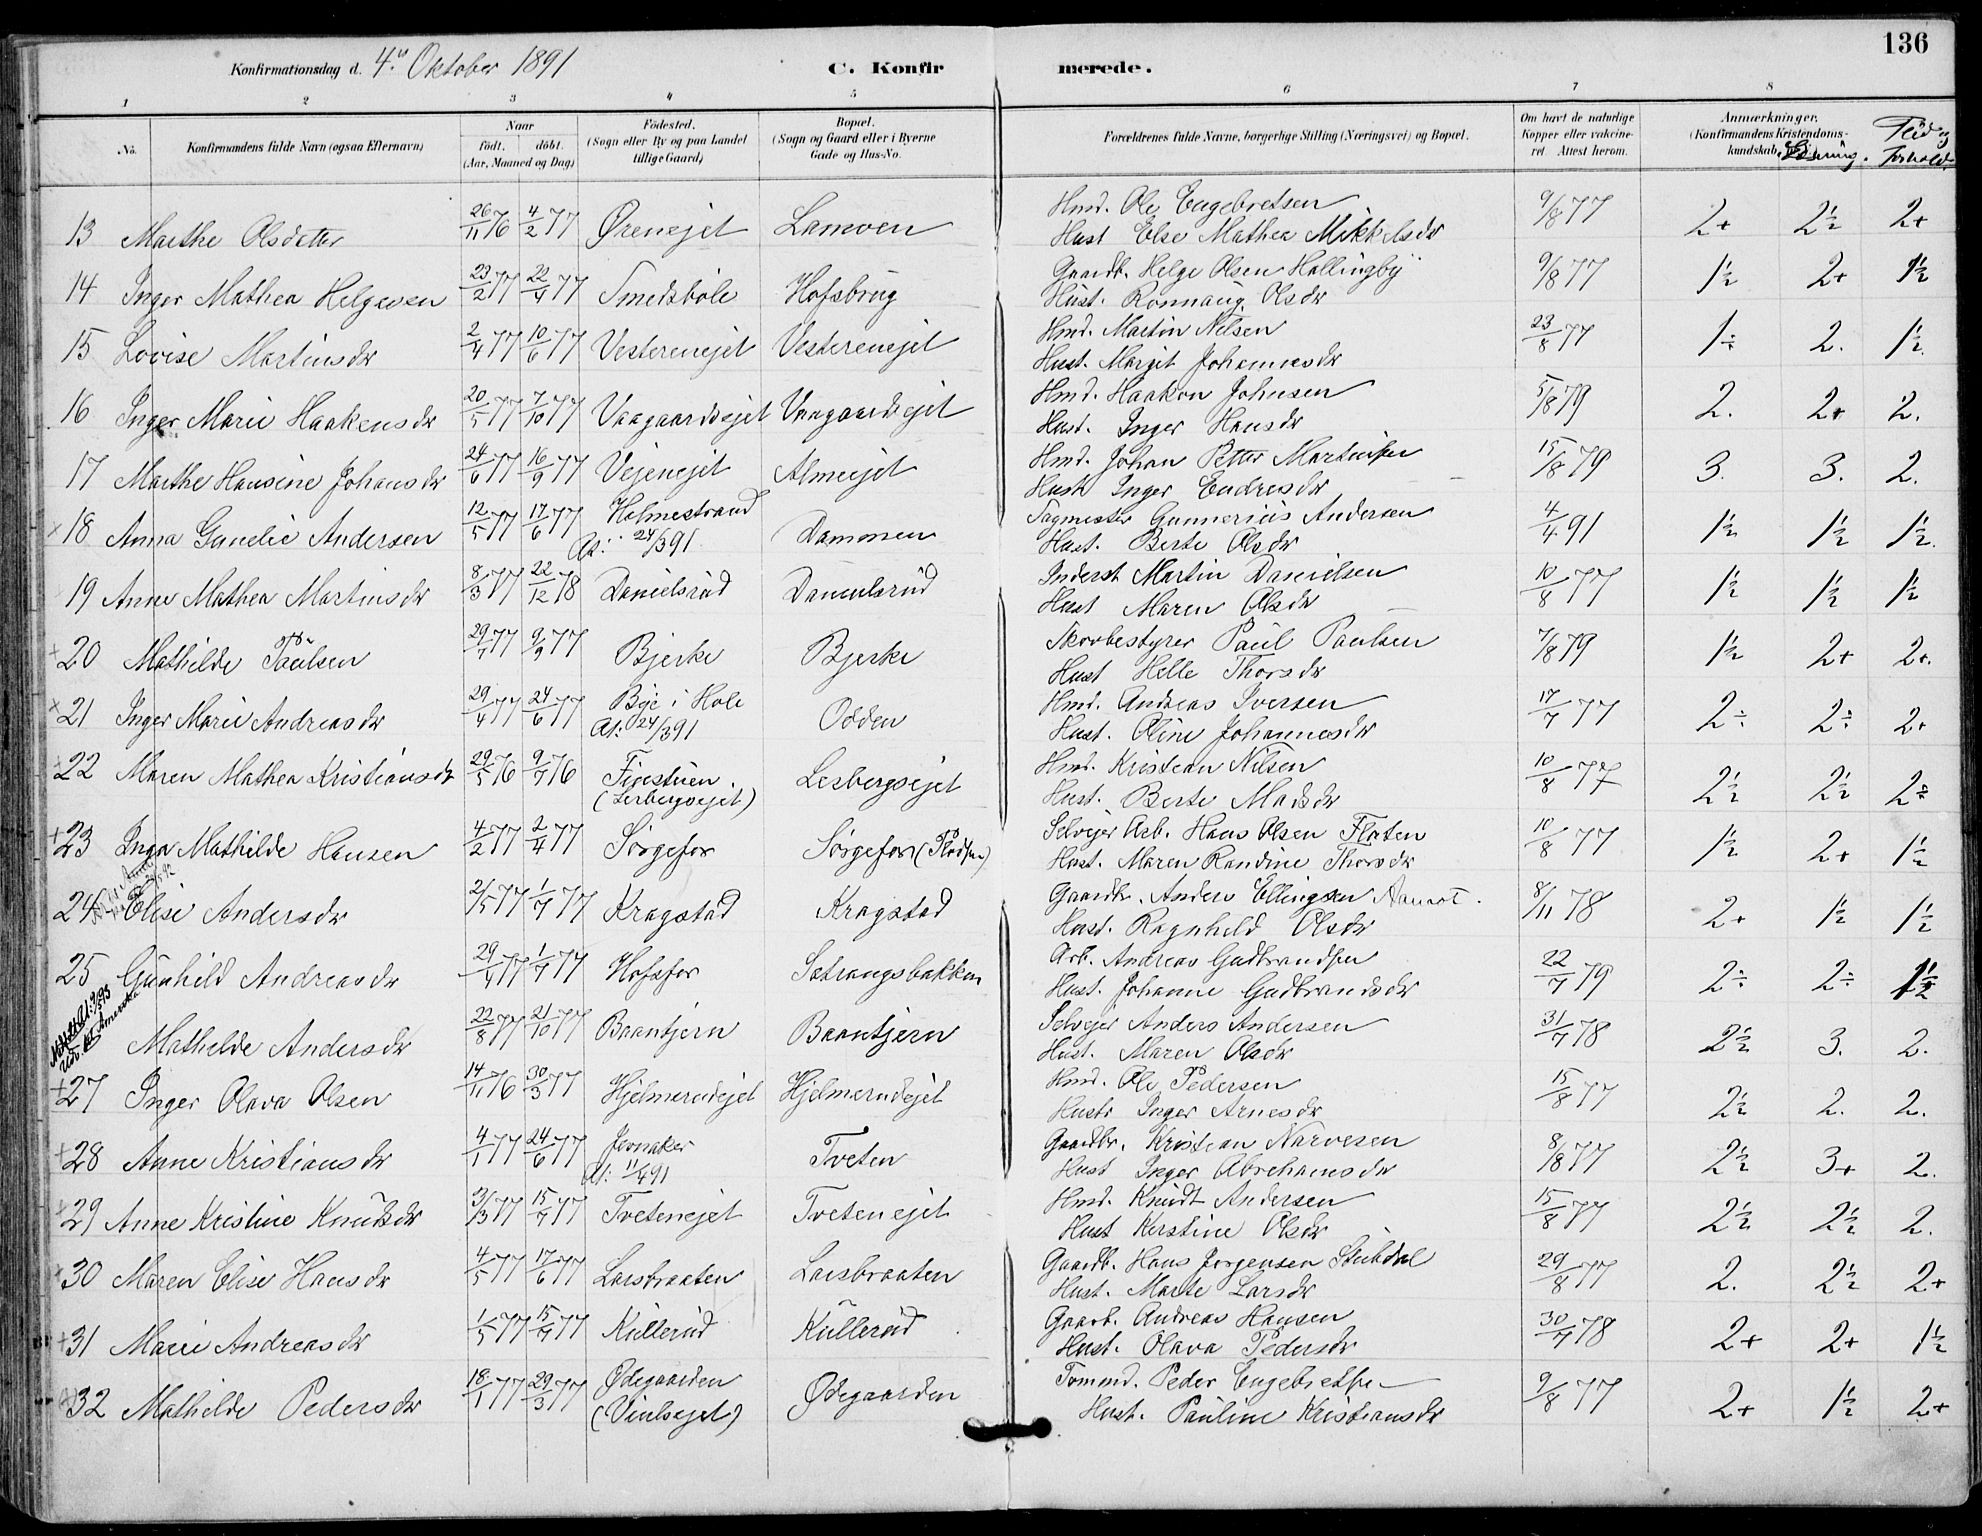 136
Konfirmationsdag d. 4de Oktober 1891
C. Konfirmerede.
1 2 3 4 5 6 7 8
No.
Konfirmandens fulde Navn (ogsaa Efternavn)
Naar født. døbt. (Aar, Maaned og Dag)
Fødested. (Sogn eller By og paa Landet tillige Gaard)
Bopæl. (Sogn og Gaard eller i Byerne Gade og Hus-No.
Forældrenes fulde Navne, borgerlige Stilling (Næringsvei) og Bopæl.
Om havt de naturlige Kopper eller vakcineret. Attest herom.
Anmærkninger. (Konfirmandens Kristendomskundskab, Læsning.
Flid og Forhold.
13 Marthe Olsdatter 26/11 76 4/2 77 Øreneiet Lamoen Hmd. Ole Engebretsen 9/8 77 2+ 2½ 2+
Hust Else Mathea Mikkelsdr
14 Inger Mathea Helgesen 23/2 77 22/4 77 Smedsbøle Hofsbrug Gaardb. Helge Olsen Hallingby 9/8 77 1½ 2+ 1½
Hust. Rønnaug Olsdr
15 Lovise Martinsdr 2/4 77 10/6 77 Vestereneiet Vestereneiet Hmd. Martin Nelsen 23/8 77 1÷ 2. 1½
Hust. Margit Johannesdr
16 Inger Marie Haakensdr 20/5 77 7/10 77 Vaagaardseiet Vaagaardseiet Hmd. Haakon Johnsen 5/8 79 2. 2+ 2.
Hust. Inger Hansdr
17 Marthe Hansine Johansdr 24/6 77 16/9 77 Vejeneiet Almeiet Hmd. Johan Petter Martinsen 15/8 79 3. 3. 2.
Hust Inger Endresdr
18 Anna Gunelie Andersen 12/5 77 17/6 77 Holmestrand Dammen Sagmester Gunnerius Andersen 4/4 91 1½ 1½ 1½
At: 24/3 91 Hust. Berte Olsdr
19 Anne Mathea Martinsdr 8/3 77 22/12 78 Danielsrud Danielsrud Inderst Martin Danielsen 10/8 77 1½ 1½ 1½
Hust Maren Olsdr
20 Mathilde Paulsen 29/7 77 9/9 77 Bjerke Bjerke Skovbestyrer Paul Paulsen 7/8 79 1½ 2+ 2+
Hust Helle Thorsdr
21 Inger Marie Andreasdr 29/4 77 24/6 77 Bye i Hole Odden Hmd. Andreas Iversen 17/7 77 2÷ 2÷ 2+
At: 24/3 91 Hust. Oline Johannesdr
22 Maren Mathea Kristiansdr 29/5 76 9/7 76 Figestuen Lesbergseiet Hmd. Kristian Nilsen 10/8 77 2½ 2½ 2÷
(Lerbergseiet) Hust. Berte Madsdr
23 Inga Mathilde Hansen 4/2 77 2/4 77 Sørgefos Sørgefos Selvejer Arb. Hans Olsen Flaten 10/8 77 1½ 2+ 1½
Hust. Maren Randine Thorsdr
24 Elise Andersdr 2/5 77 1/7 77 Kragstad Kragstad Gaardbr. Anders Ellingsen 8/11 78 2+ 1½ 1½
Hust. Ragnhild Olsdr
25 Gunhild Andreasdr 29/4 77 1/7 77 Hofsfos Sætrangsbakken Arb. Andreas Gudbrandsen 22/7 79 2÷ 2÷ 1½
Hust. Johanne Gudbrandsdr
Mathilde Andersdr 22/8 77 21/10 77 Baantjern Baantjern Selvejer Anders Andersen 31/7 78 2½ 3. 2.
Hust. Maren Olsdr
27 Inger Olava Olsen 14/11 76 30/3 77 Hjelmerudeiet Hjelmerudeiet Hmd. Ole Pedersen 15/8 77 2½ 2. 2.
Hustr Inger Arnesdr
28 Anne Kristiansdr 4/1 77 24/6 77 Jevnaker Tveten Gaardbr. Kristian Narvesen 8/8 77 2½ 3+ 2.
At: 11/4 91 Hust Inger Abrahamsdr
29 Anne Kristine Knudsdr 3/3 77 15/7 77 Tveteneiet Tveteneiet Hmd. Knudt Andersen 15/8 77 2½ 2½ 2.
Hust Kerstine Olsdr
30 Maren Elise Hansdr 4/5 77 17/6 77 Larsbraaten Larsbraaten Gaardb. Hans Jørgensen Stubdal 29/8 77 2. 2½ 2+
Hust. Marte Larsdr
31 Marie Andreasdr 1/5 77 15/7 77 Kullerud Kullerud Gaardb. Andreas Hansen 30/7 78 2+ 2+ 1½
Hust. Olava Pedersdr
32 Mathilde Pedersdr 18/1 77 29/3 77 Ødegaarden Ødegaarden Tommd. Peder Engebretsen 9/8 77 2+ 1½ 2+
Hust. Pauline Kristiansdr